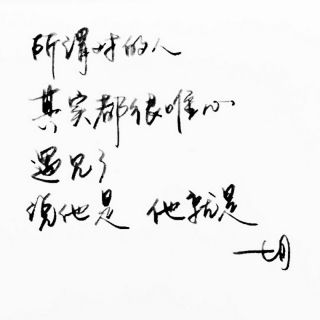 所謂对的人
其实都很唯心
遇见了
说他是 他就是
——七月